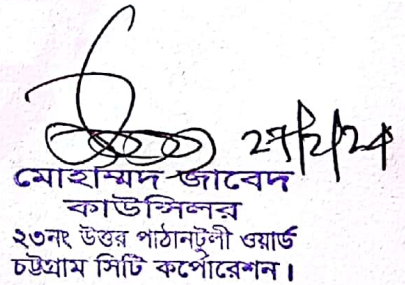 27/2/24
মোহাম্মদ জাবেদ
কাউন্সিলর
২৩নং উত্তর পাঠানটুলী ওয়ার্ড
চট্টগ্রাম সিটি কর্পোরেশন।